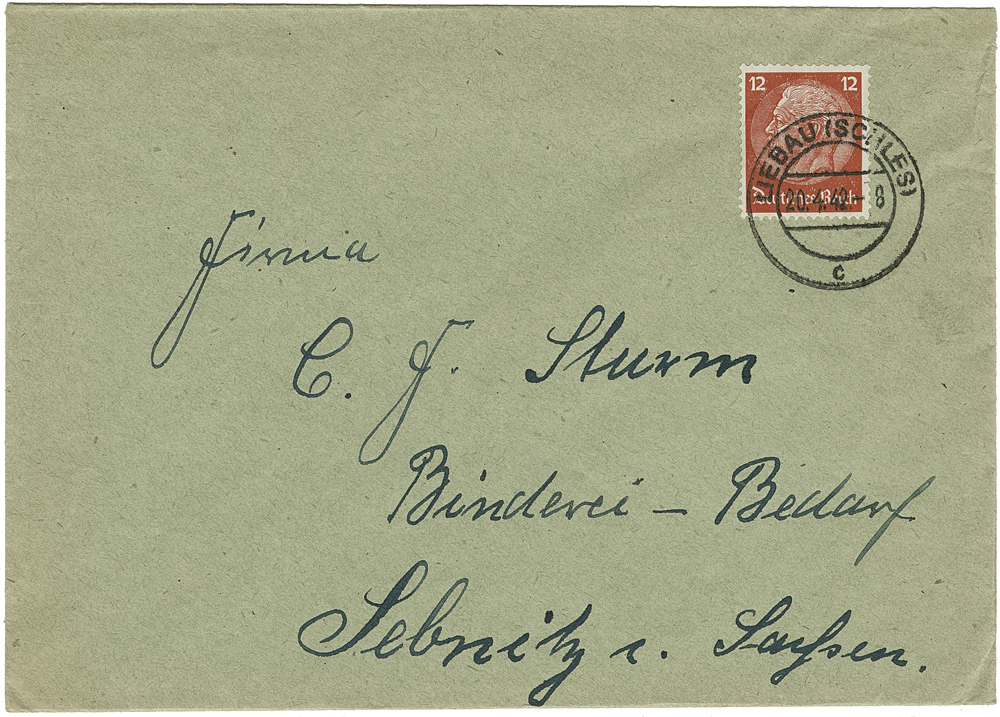 12 12
Deutsches Reich
LIEBAU (SCHLES)
20.4.42.- 8
c
Firma
C. F. Sturm
Binderei - Bedarf
Sebnitz i. Sachsen.